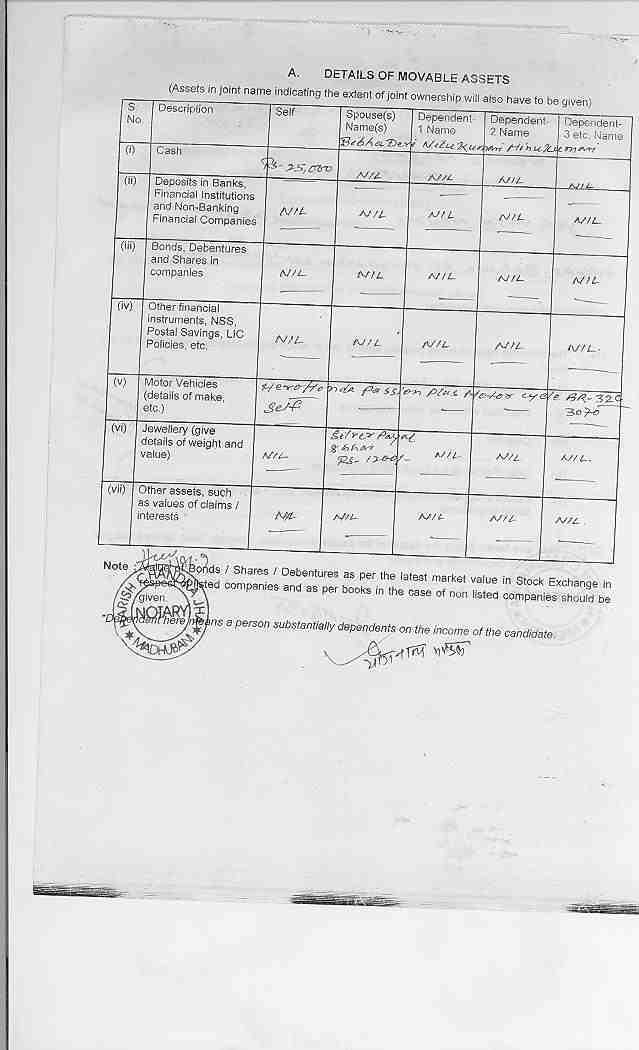 A. DETAILS OF MOVABLE ASSETS
(Assets in joint name indicating the extent of joint ownership will also have to be given)
S. No Description Self Spouse(s) Name(s) Dependent-1 Name Dependent-2 Name Dependent-3 etc. Name
Bibha Devi Nilu Kumari Minu Kumari
(i) Cash Rs- 25,000 NIL NIL NIL NIL
(ii) Deposits in Banks,
Financial Institutions
and Non-Banking
Financial Companies NIL NIL NIL NIL NIL
(iii) Bonds, Debentures
and Shares in
companies NIL NIL NIL NIL NIL
(iv) Other financial
instruments, NSS,
Postal Savings, LIC
Policies, etc. NIL NIL NIL NIL NIL.
(v) Motor Vehicles
(details of make,
etc.) Hero Honda Passion Plus Motor cycle BR-32G
Self 3070
(vi) Jewellery (give
details of weight and
value) NIL Silver Payal
8 bhar
Rs- 1200/- NIL NIL NIL.
(vii) Other assets, such
as values of claims /
interests NIL NIL NIL NIL NIL.
Note : Value of Bonds / Shares / Debentures as per the latest market value in Stock Exchange in
respect of listed companies and as per books in the case of non listed companies should be
given.
*Dependent here means a person substantially dependents on the income of the candidate.
HARISH CHANDRA JHA
NOTARY
MADHUBANI